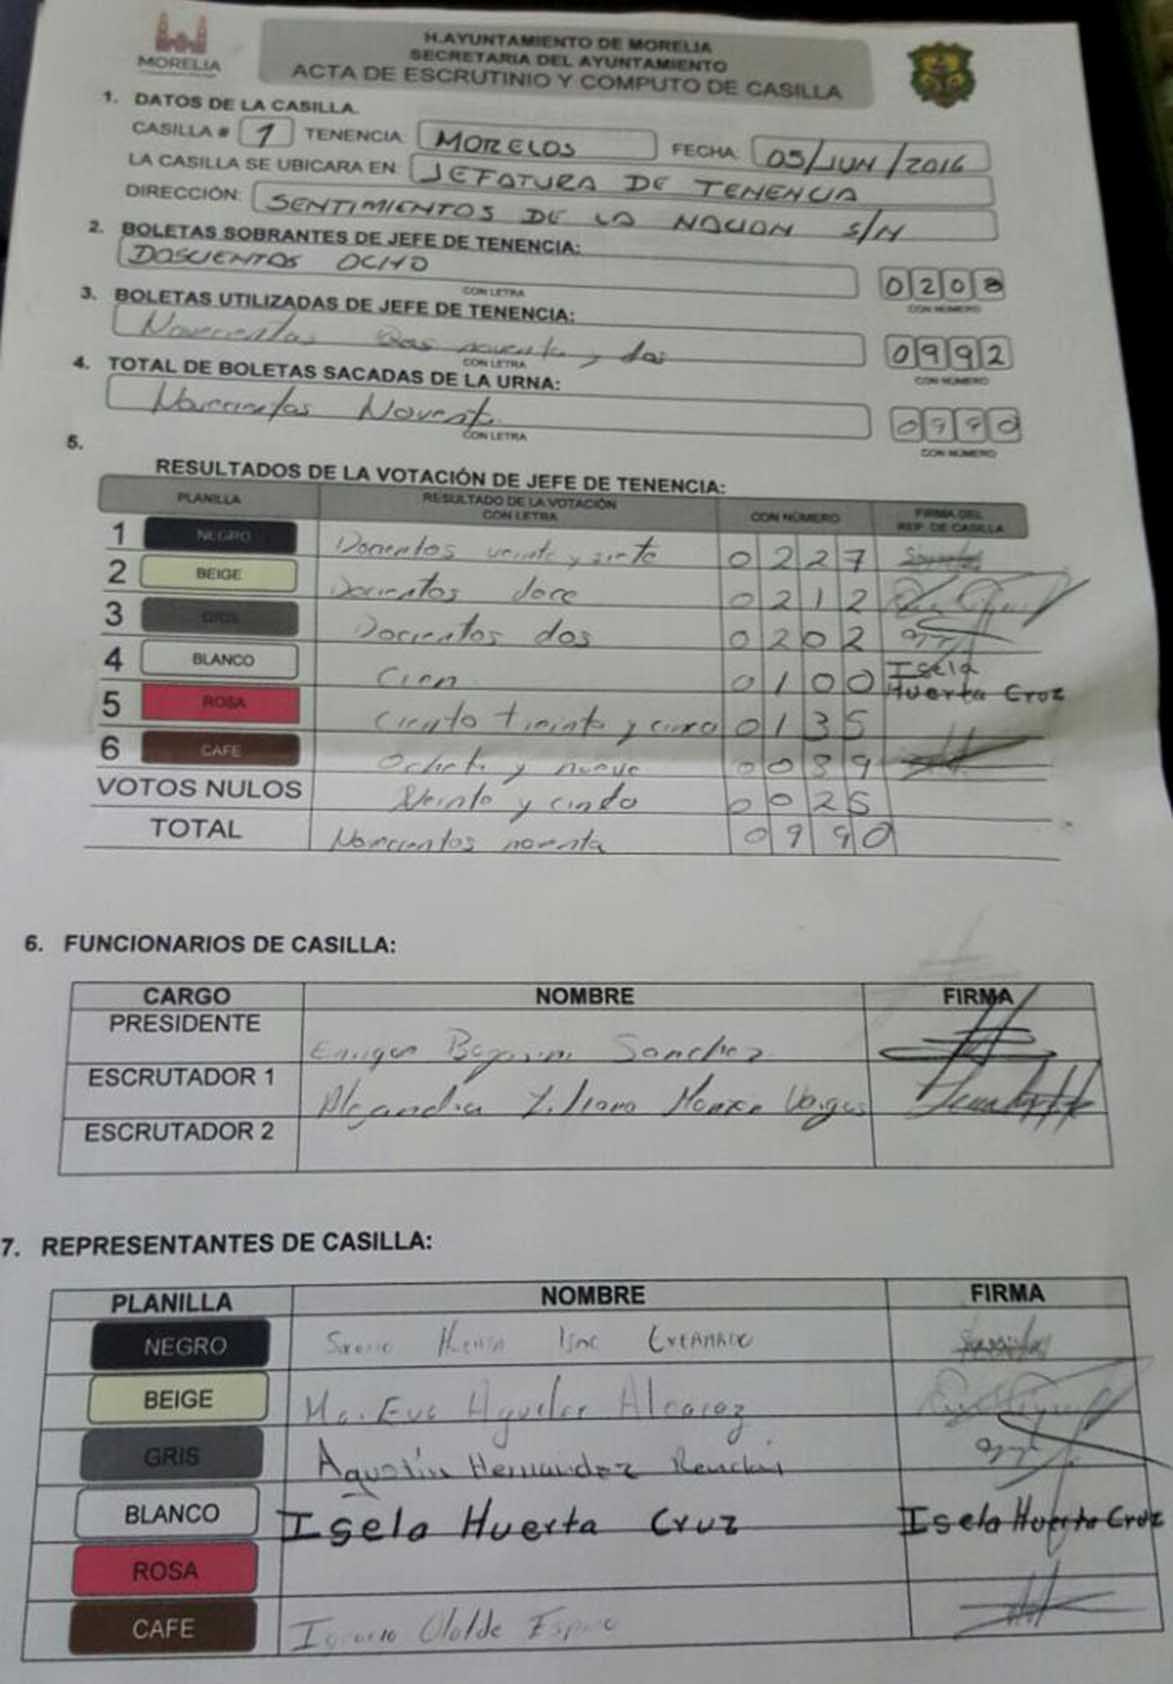 MORELIA
H.AYUNTAMIENTO DE MORELIA
SECRETARIA DEL AYUNTAMIENTO
ACTA DE ESCRUTINIO Y COMPUTO DE CASILLA
1. DATOS DE LA CASILLA.
CASILLA # 1 TENENCIA: MORELOS FECHA: 05/JUN/2016
LA CASILLA SE UBICARA EN: JEFATURA DE TENENCIA
DIRECCIÓN: SENTIMIENTOS DE LA NACION S/N
2. BOLETAS SOBRANTES DE JEFE DE TENENCIA:
DOSCIENTOS OCHO 0208
CON LETRA CON NÚMERO
3. BOLETAS UTILIZADAS DE JEFE DE TENENCIA:
Novecientos noventa y dos 0992
CON LETRA CON NÚMERO
4. TOTAL DE BOLETAS SACADAS DE LA URNA:
Novecientos Novent 0990
CON LETRA CON NÚMERO
5.
RESULTADOS DE LA VOTACIÓN DE JEFE DE TENENCIA:
PLANILLA RESULTADO DE LA VOTACIÓN CON LETRA CON NÚMERO FIRMA DEL REP. DE CASILLA
1 NEGRO Docientos veinte y siete 0227
2 BEIGE Docientos doce 0212
3 GRIS Docientos dos 0202
4 BLANCO Cien 0100 Isela Huerta Cruz
5 ROSA Ciento treinta y cinco 0135
6 CAFE Ochenta y nueve 0089
VOTOS NULOS Veinte y cinco 0025
TOTAL Novecientos noventa 0990
6. FUNCIONARIOS DE CASILLA:
CARGO NOMBRE FIRMA
PRESIDENTE Enrique Sanchez
ESCRUTADOR 1 Alejandra Liliana Vargas
ESCRUTADOR 2
7. REPRESENTANTES DE CASILLA:
PLANILLA NOMBRE FIRMA
NEGRO
BEIGE Ma. Eva Aguilar Alcaraz
GRIS Agustín Hernandez
BLANCO Isela Huerta Cruz Isela Huerta Cruz
ROSA
CAFE Ignacio Olalde